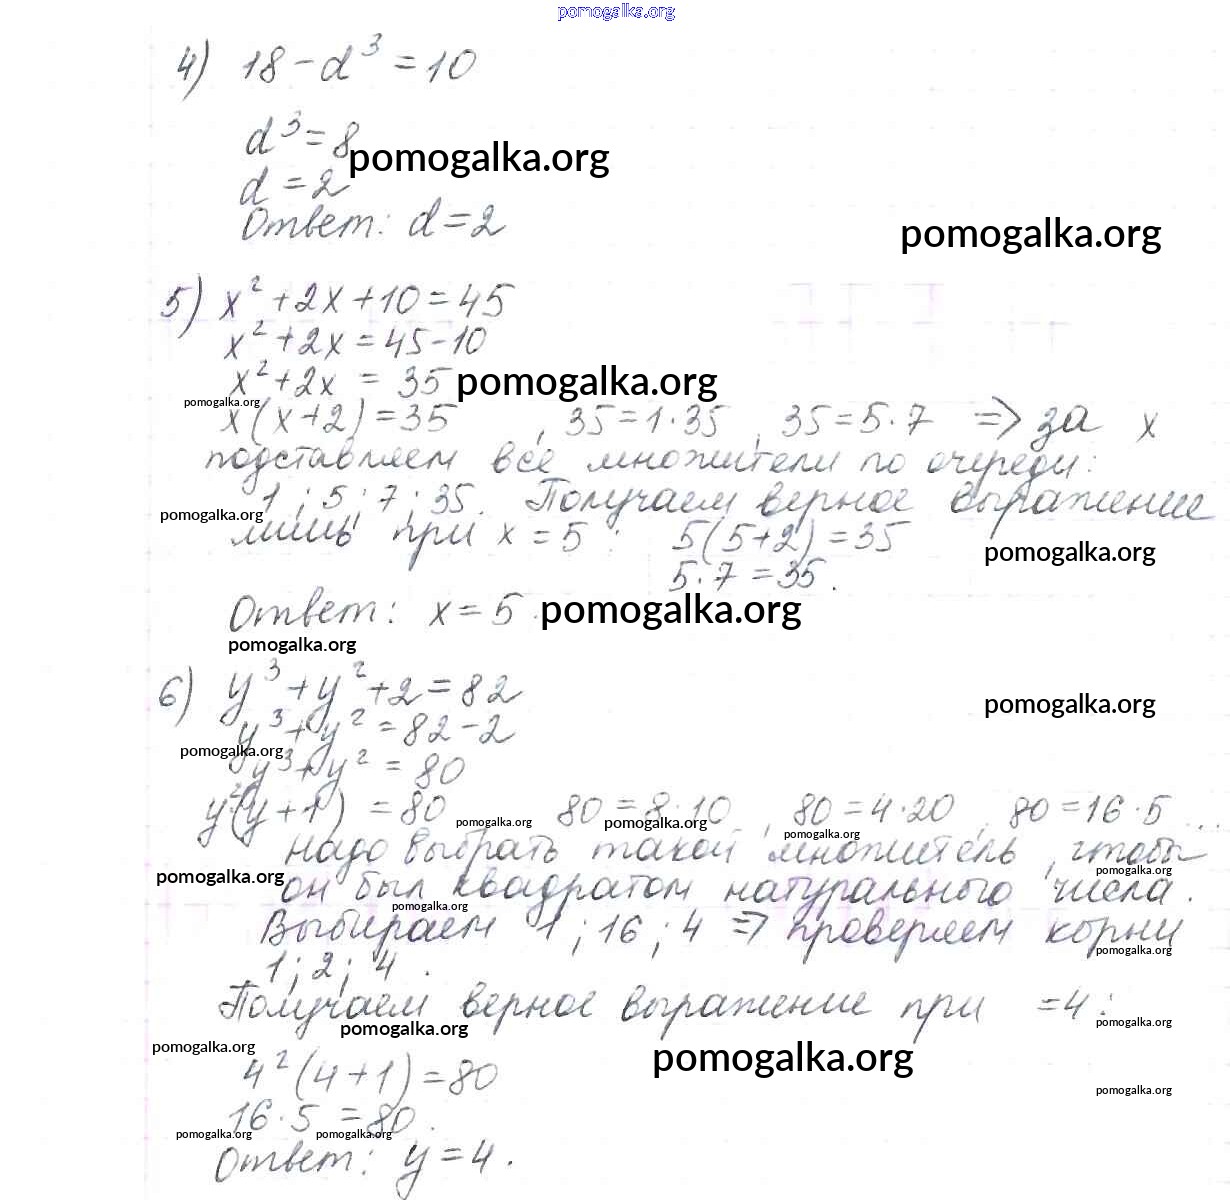 pomogalka.org
4) 18 - d³ = 10
d³ = 8
pomogalka.org
d = 2
Ответ: d = 2
pomogalka.org
5) x² + 2x + 10 = 45
x² + 2x = 45 - 10
x² + 2x = 35 pomogalka.org
pomogalka.org
x(x+2) = 35 , 35 = 1·35 , 35 = 5·7 => за x
подставляем все множители по очереди:
1 ; 5 ; 7 ; 35. Получаем верное выражение
pomogalka.org
лишь при x = 5 : 5(5+2) = 35
pomogalka.org
5·7 = 35.
Ответ: x = 5. pomogalka.org
pomogalka.org
6) y³ + y² + 2 = 82
pomogalka.org
y³ + y² = 82 - 2
pomogalka.org
y³ + y² = 80
y²(y+1) = 80 80 = 8·10 , 80 = 4·20 , 80 = 16·5 ...
pomogalka.org pomogalka.org pomogalka.org
надо выбрать такой множитель, чтобы
pomogalka.org pomogalka.org
он был квадратом натурального числа.
pomogalka.org
Выбираем 1 ; 16 ; 4 => проверяем корни
pomogalka.org
1 ; 2 ; 4 .
Получаем верное выражение при =4 :
pomogalka.org pomogalka.org
pomogalka.org pomogalka.org
4²(4+1) = 80
pomogalka.org
16·5 = 80.
pomogalka.org pomogalka.org
Ответ: y = 4.